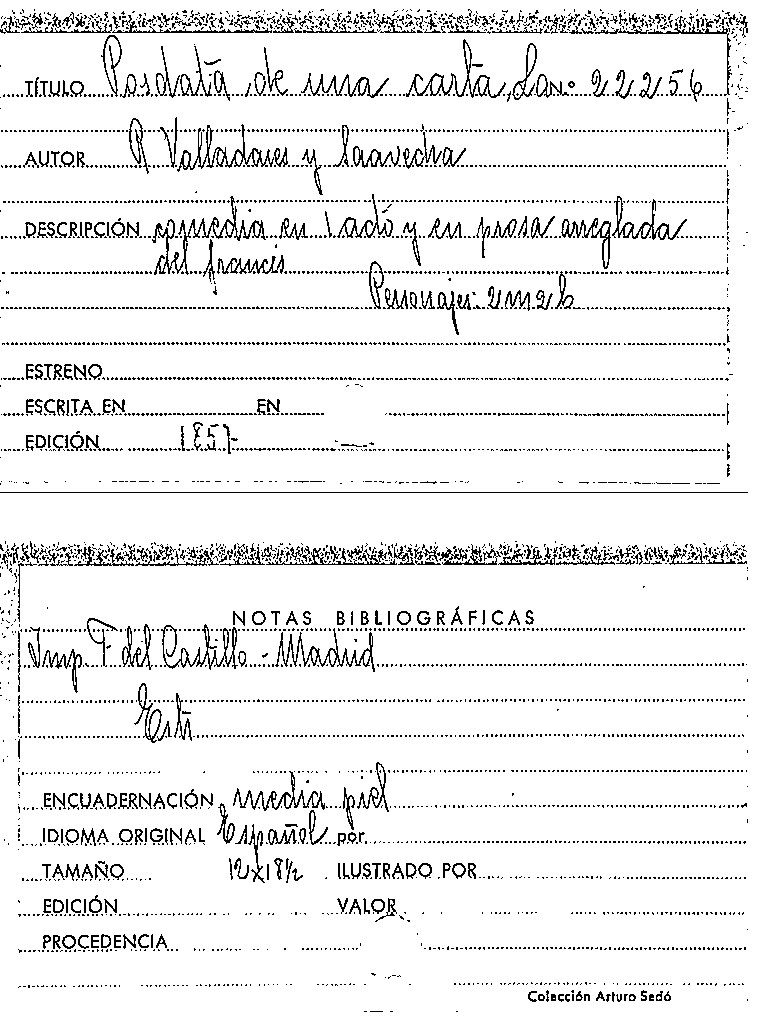 TÍTULO Posdata de una carta, La nº 22256
AUTOR R Valladares y Saavedra
DESCRIPCIÓN comedia en 1 acto y en prosa arreglada
del francés
Personajes: 2m2h
ESTRENO
ESCRITA EN EN
EDICIÓN 1857
NOTAS BIBLIOGRÁFICAS
Imp. F del Castillo - Madrid
ENCUADERNACIÓN media piel
IDIOMA ORIGINAL Español por
TAMAÑO 12x18½ ILUSTRADO POR
EDICIÓN VALOR
PROCEDENCIA
Colección Arturo Sedó